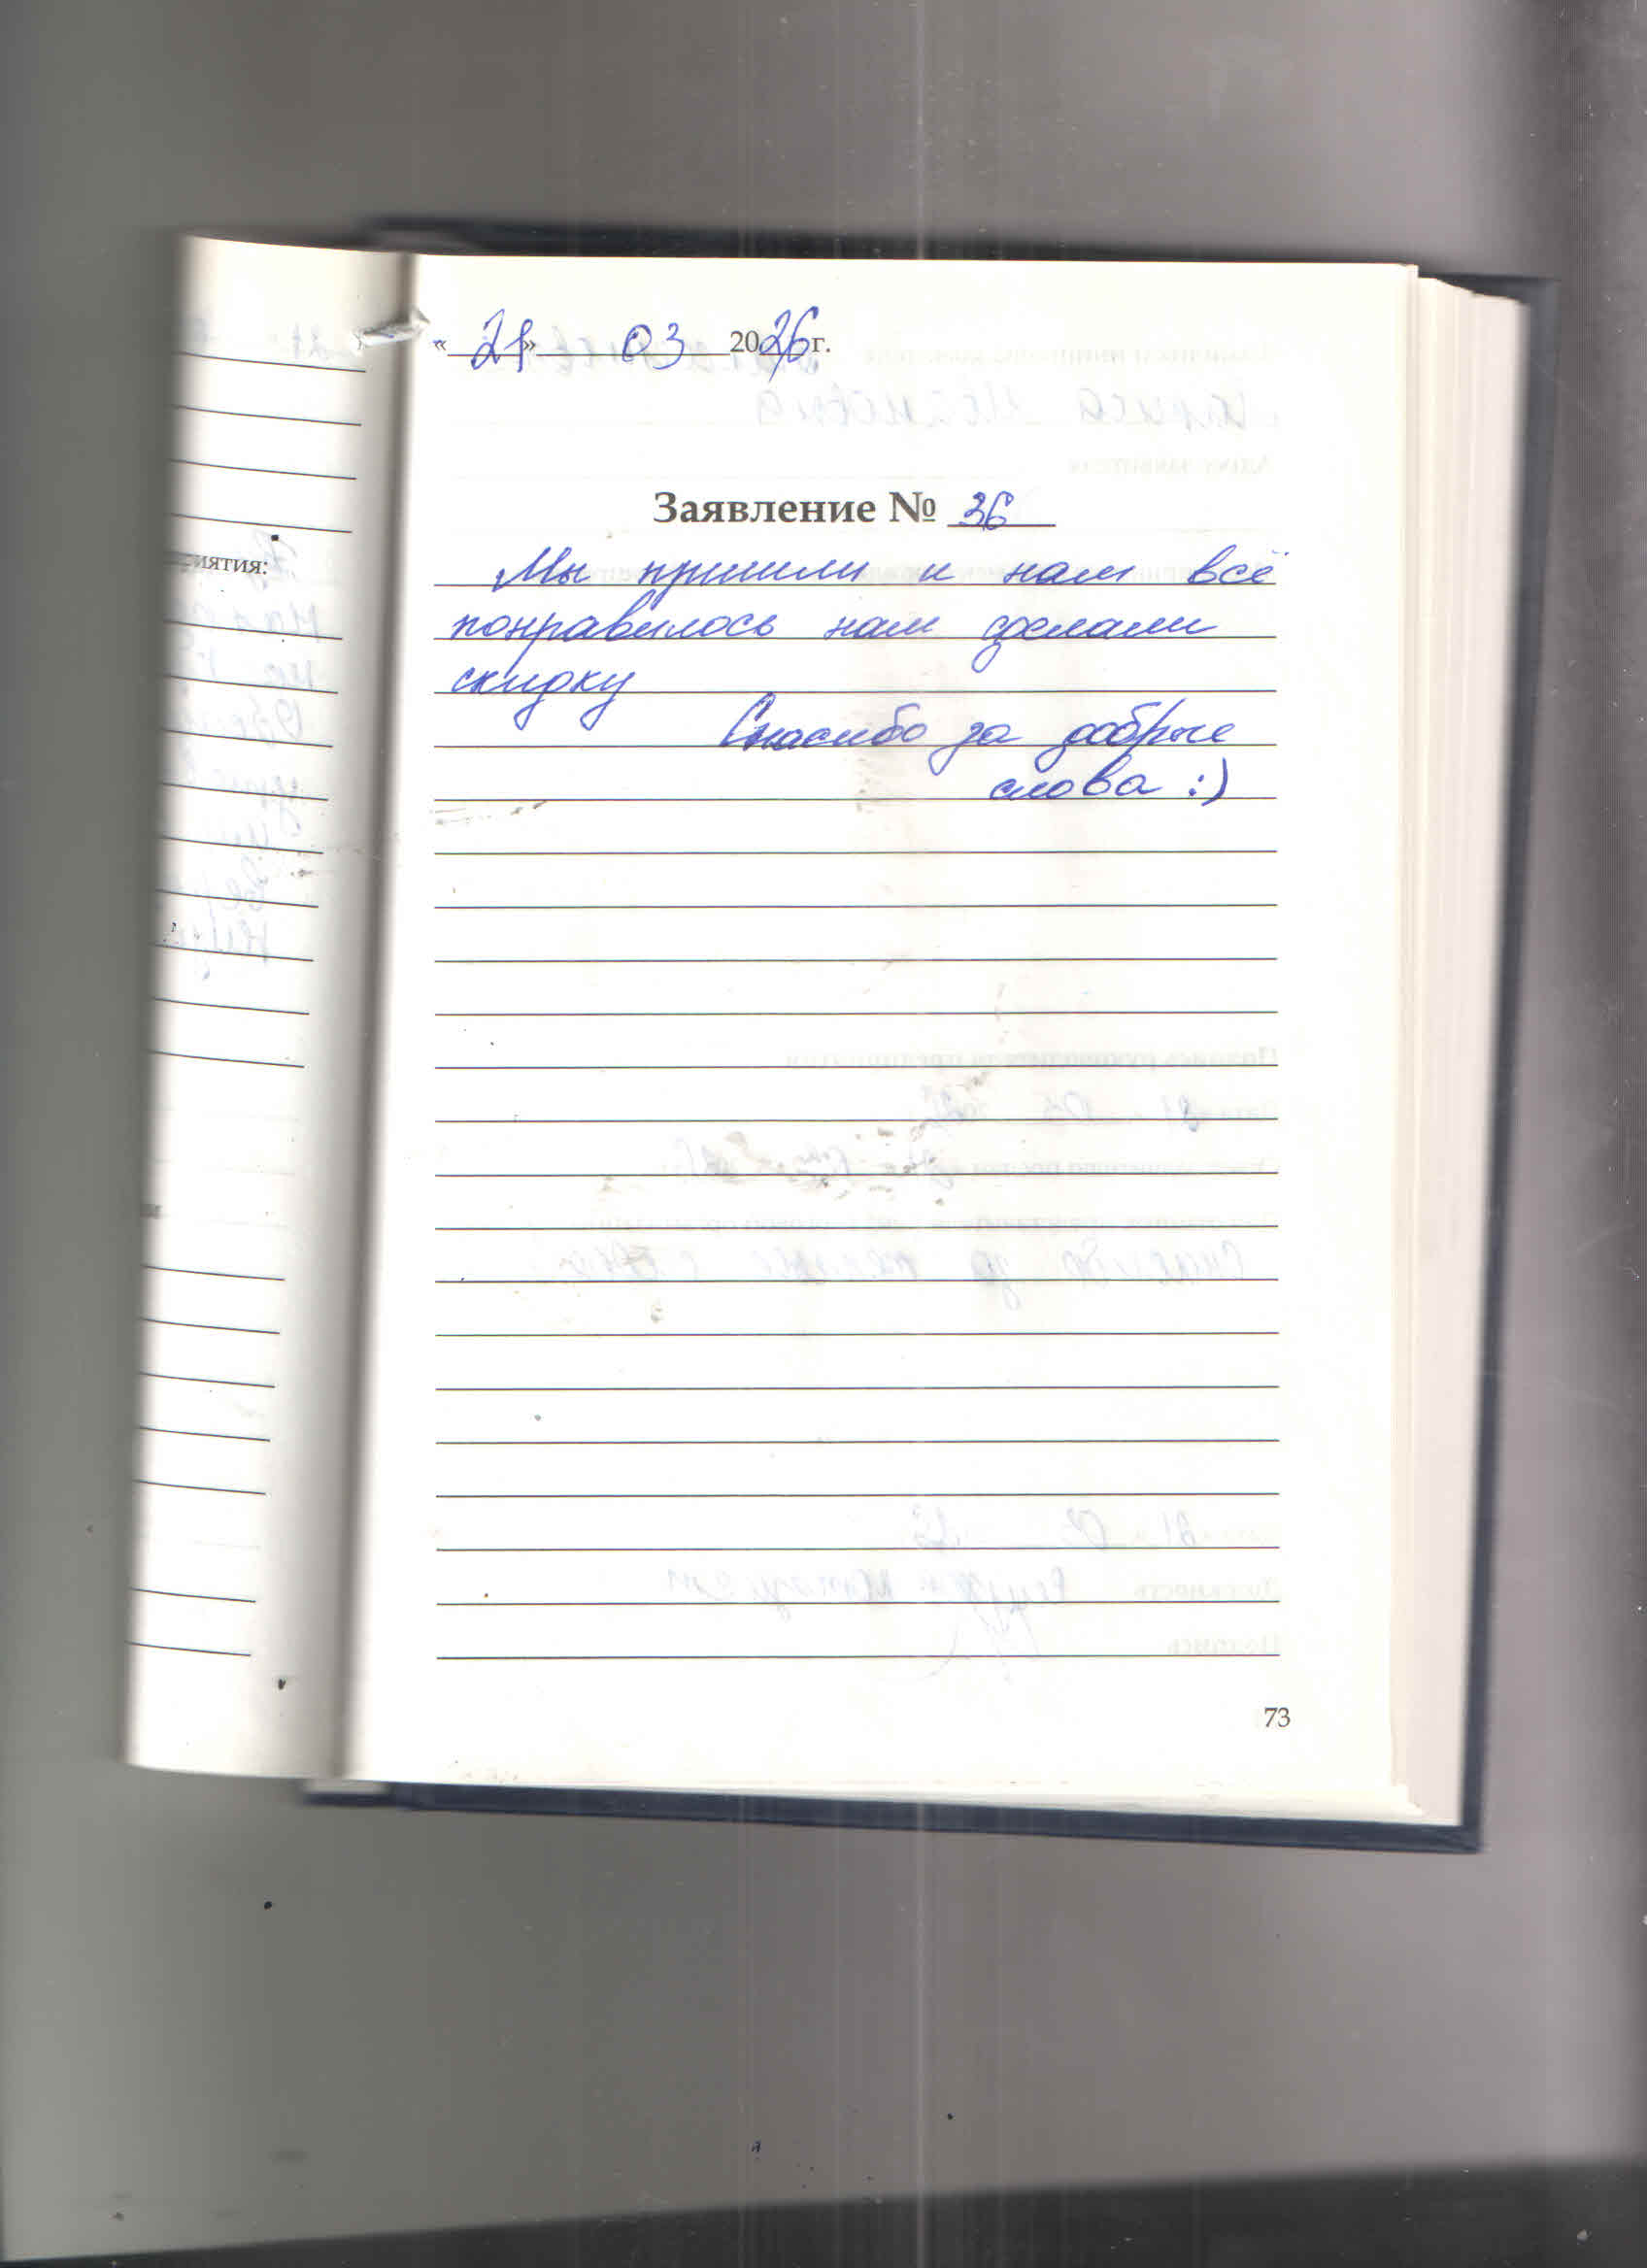 «21» 03 2026 г.
Заявление № 36
Мы пришли и нам всё
понравилось нам сделали
скидку
Спасибо за добрые
слова :)
73